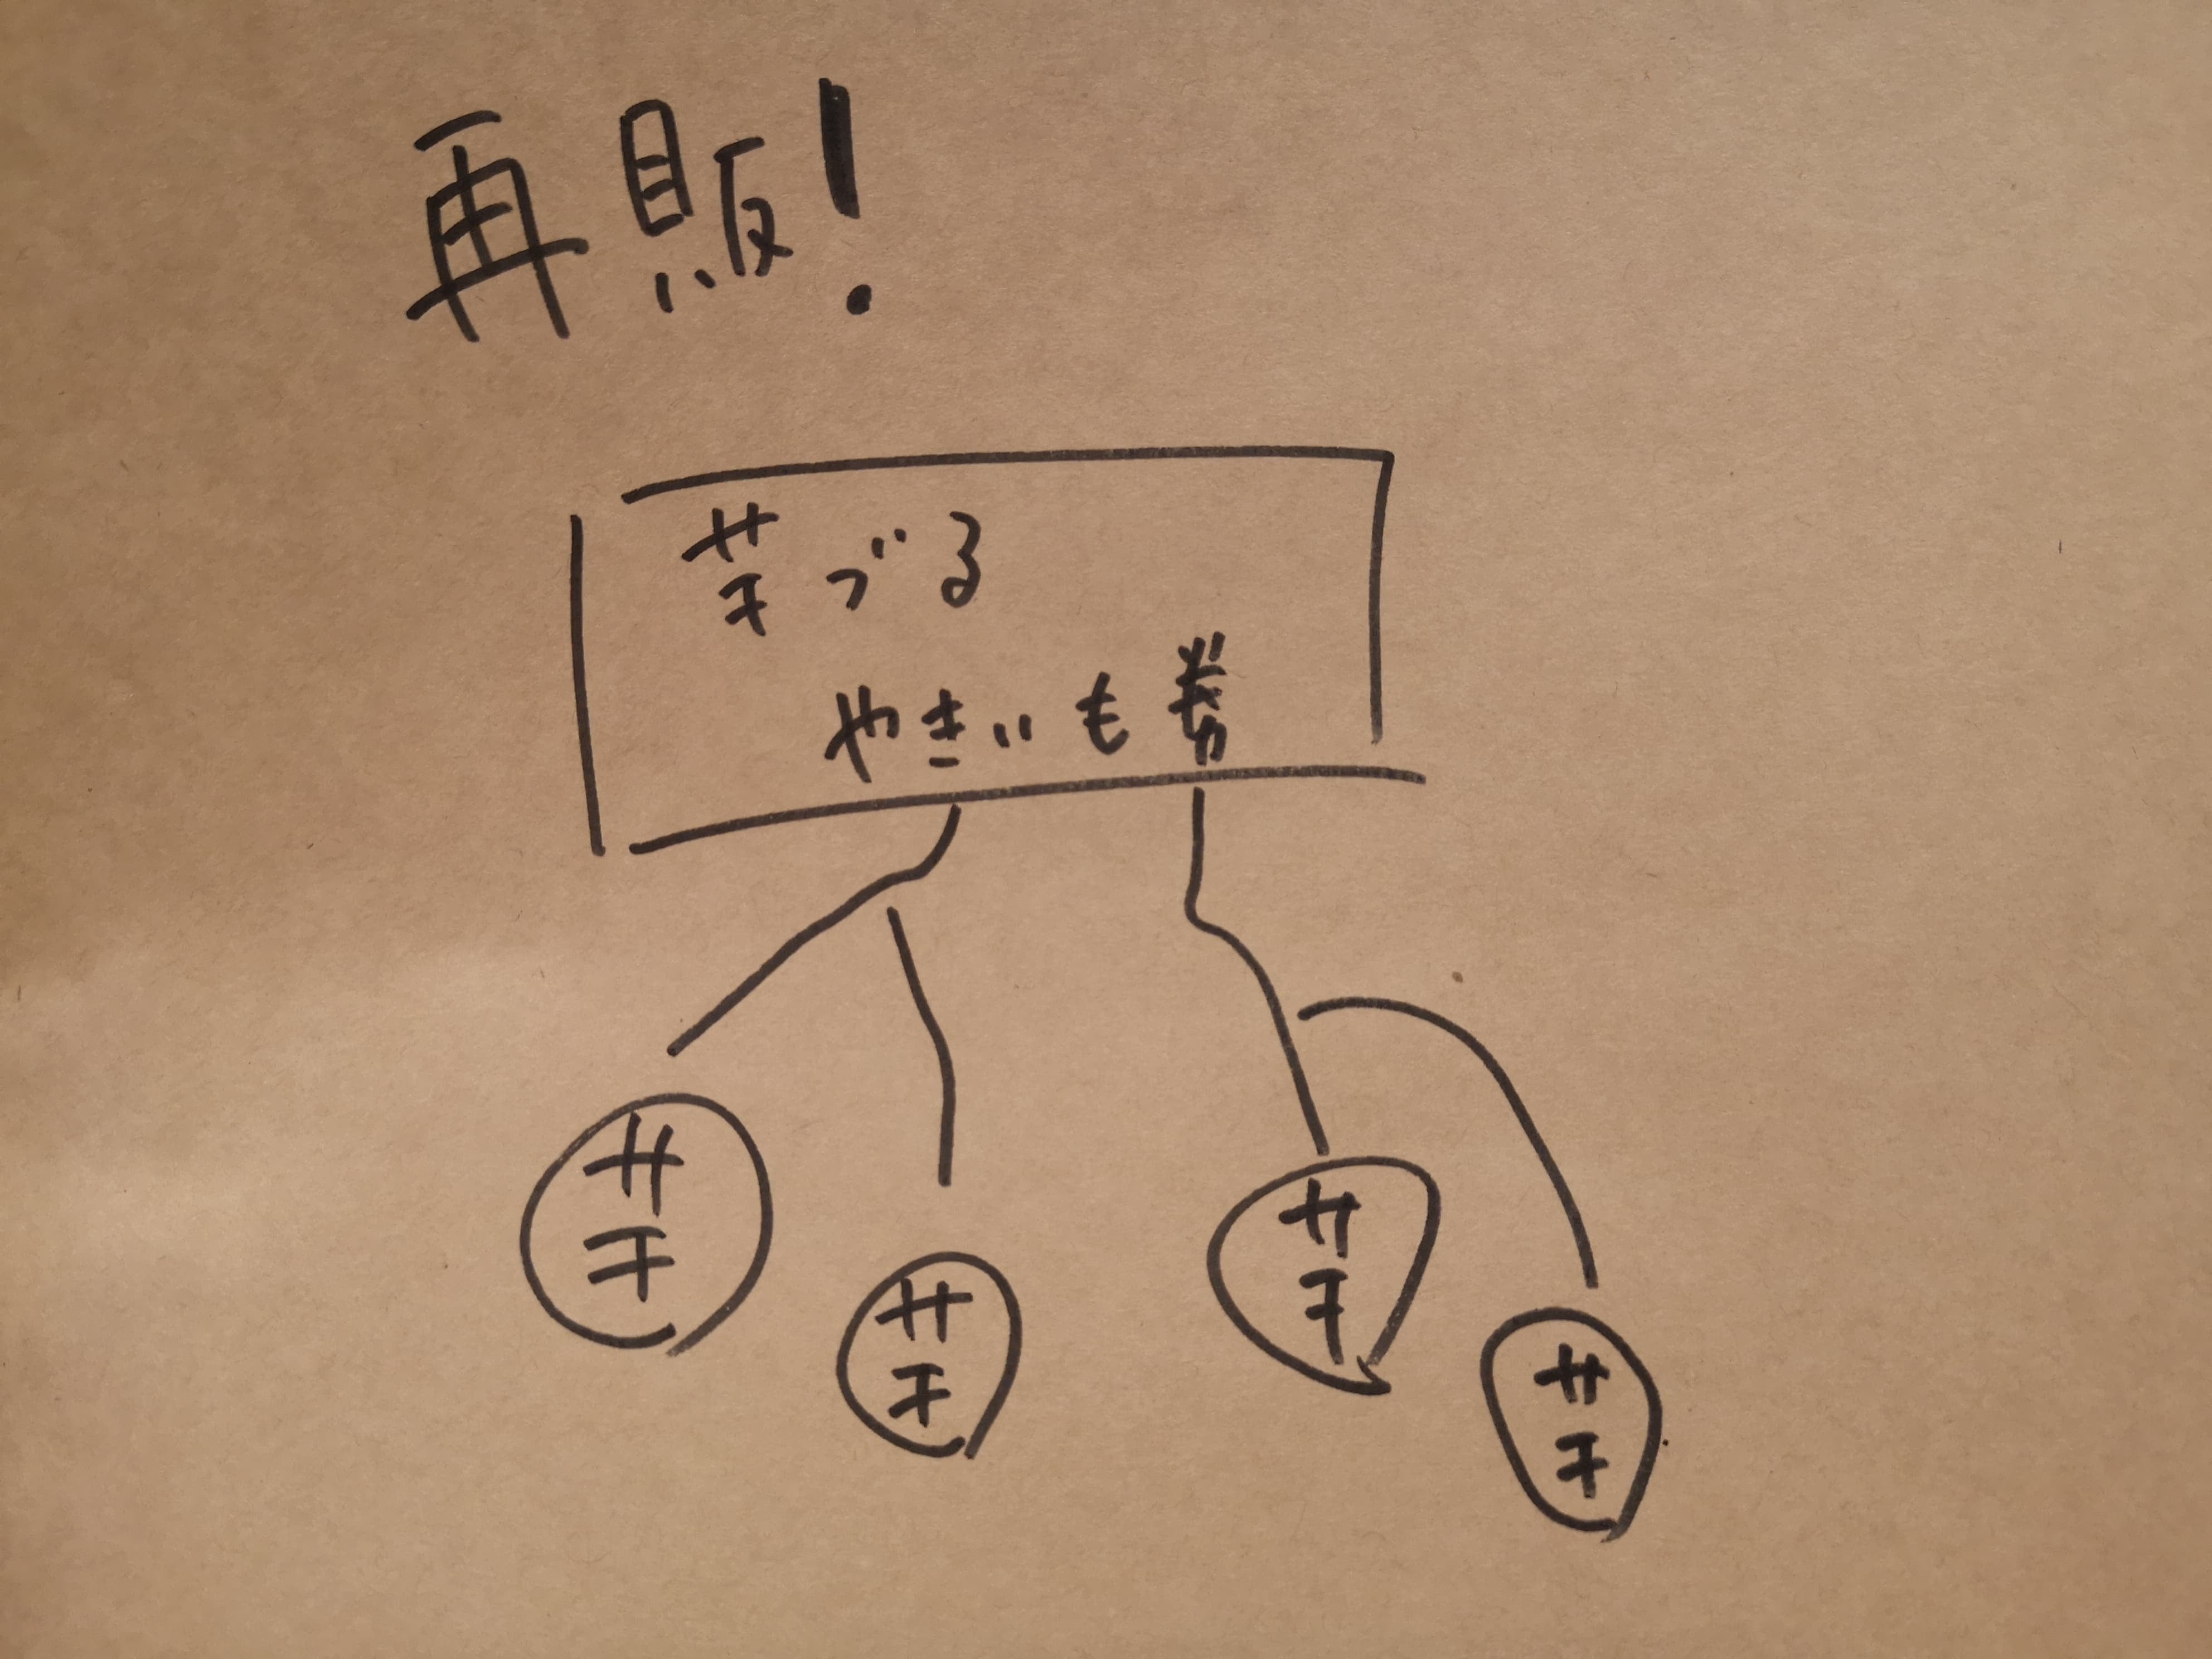 再販!
芋づる
やきいも券
芋
芋
芋
芋